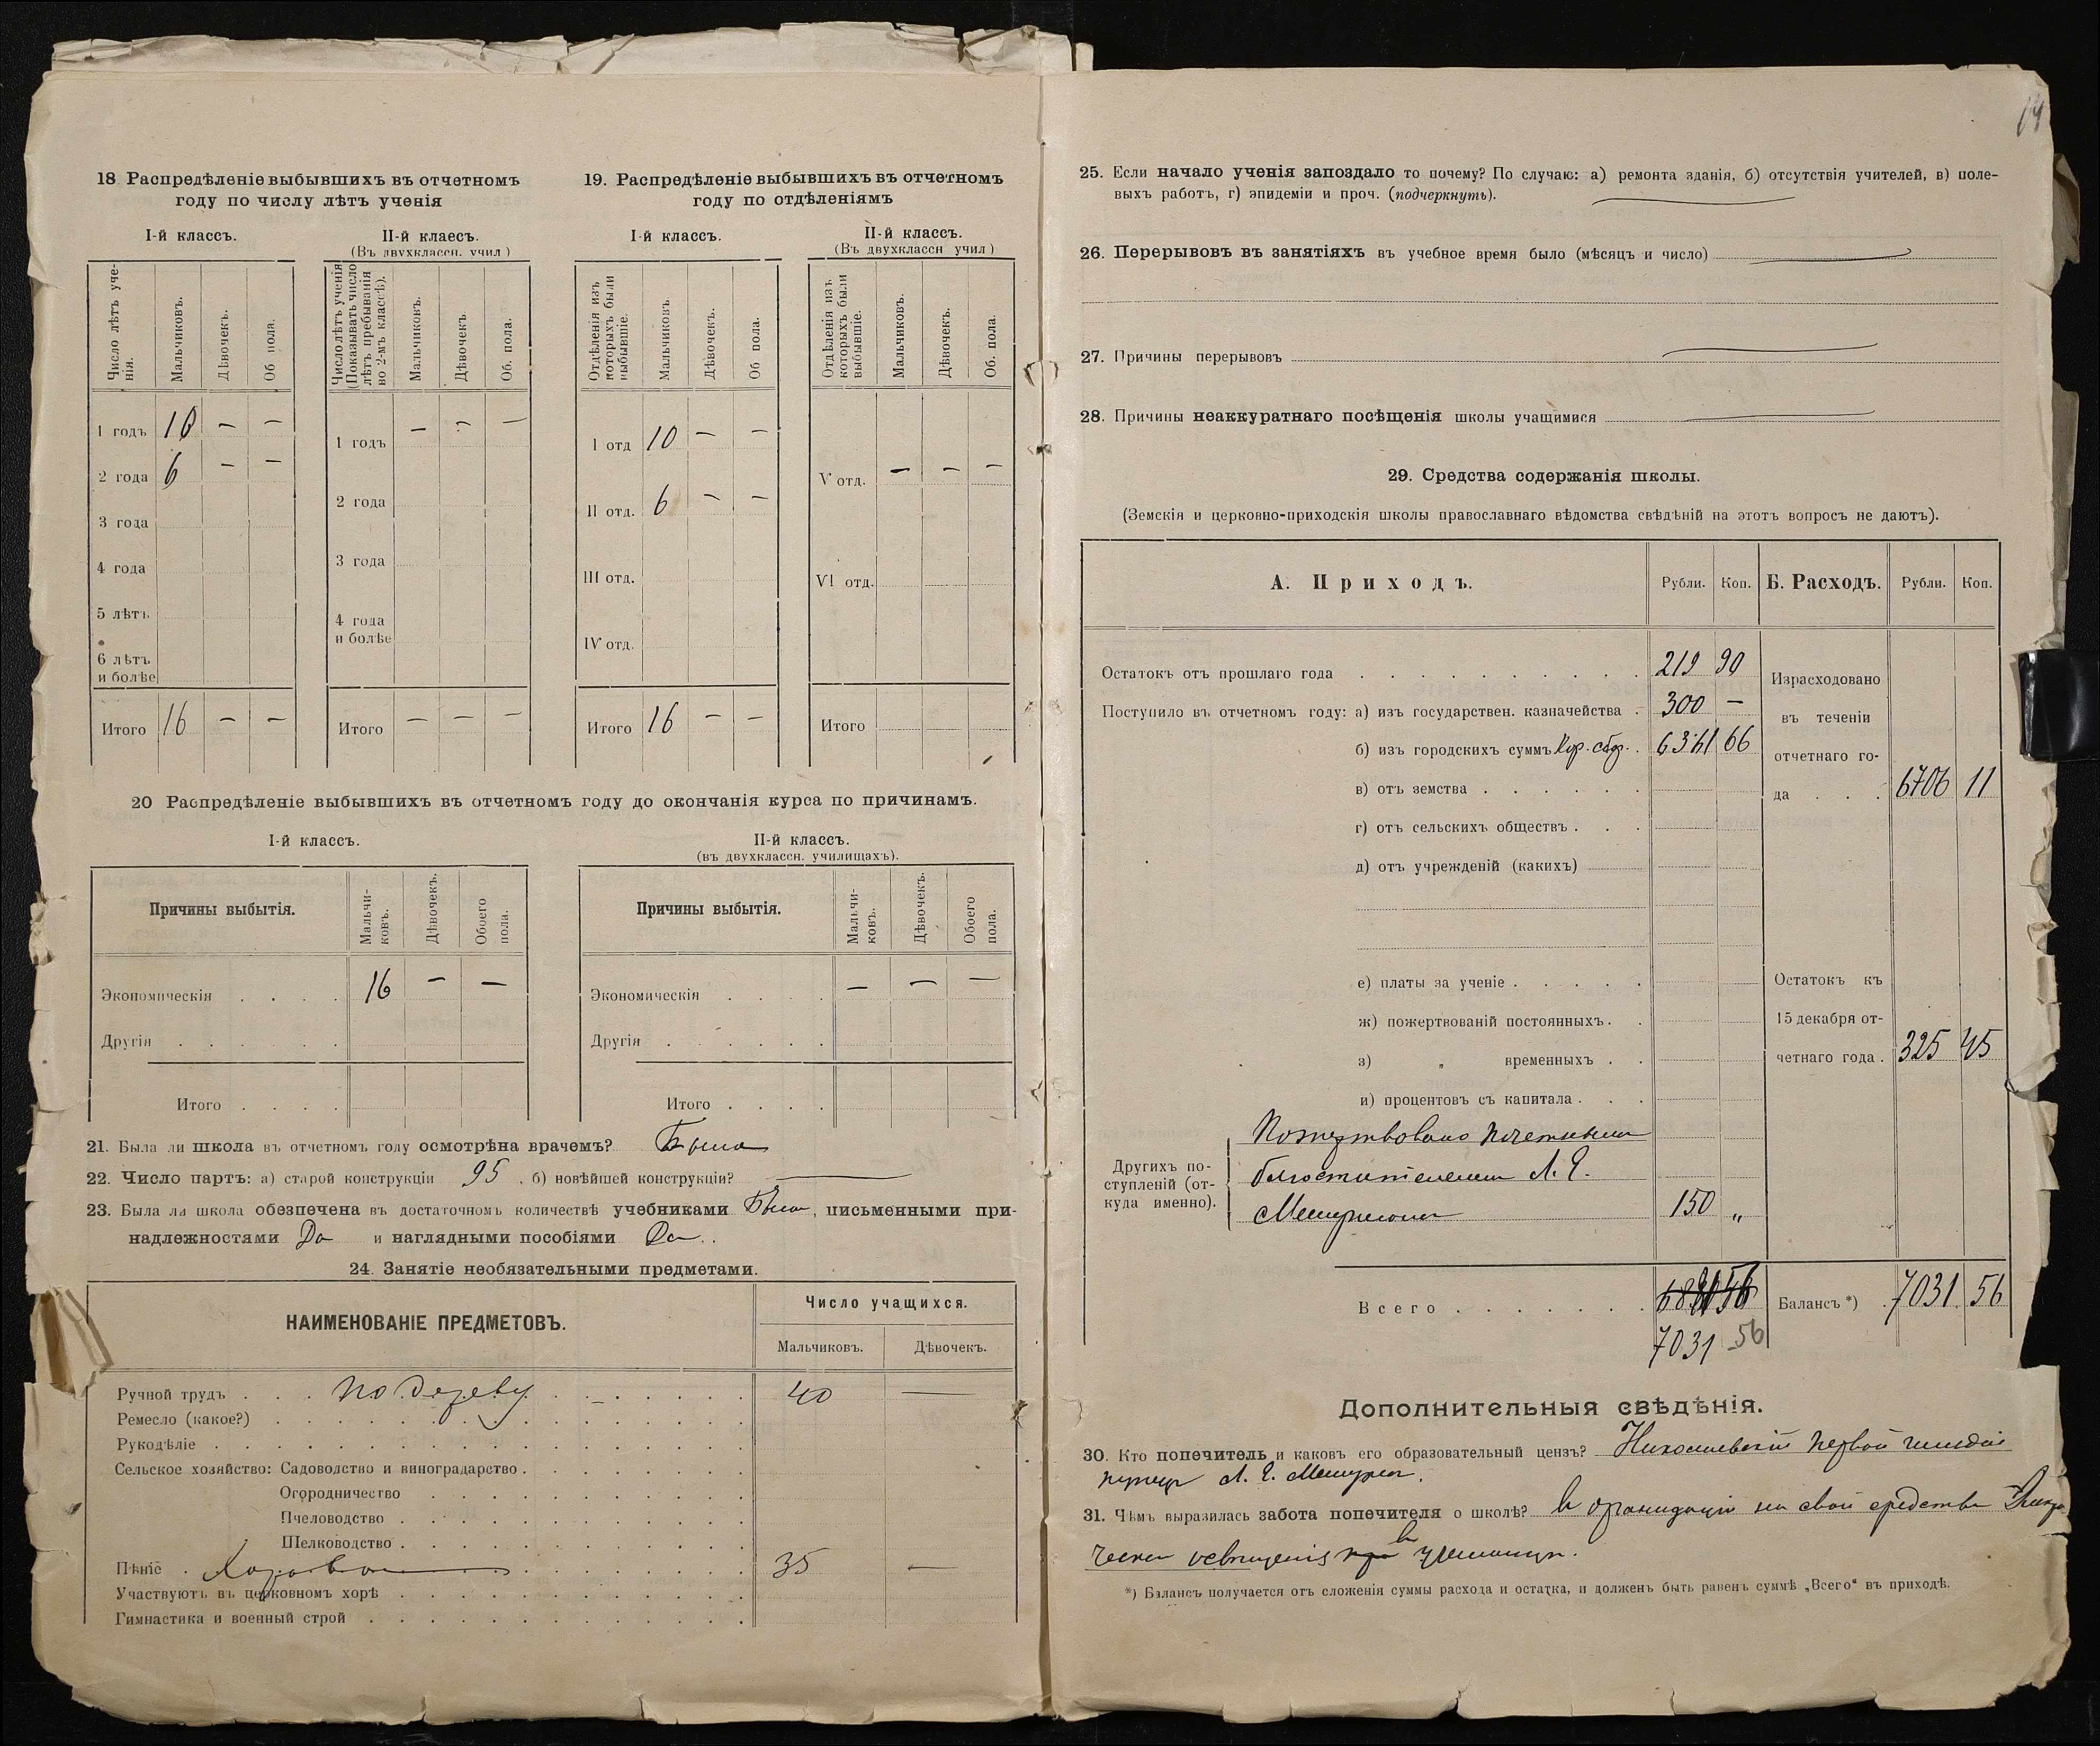 14
18 Распредѣленіе выбывшихъ въ отчетномъ
году по числу лѣтъ ученія
I-й классъ.
II-й клаесъ.
(Въ двухклассн. учил )
Число лѣтъ уче-
нія.
Мальчиковъ.
Дѣвочекъ.
Об пола.
Число лѣтъ ученія
(Показывать число
лѣтъ пребыванія
во 2-мъ классѣ).
Мальчиковъ.
Дѣвочекъ
Об. пола.
1 годъ 10 — —
2 года 6 — —
3 года
4 года
5 лѣтъ
6 лѣтъ
и болѣе
Итого 16 — —
1 годъ — — —
2 года
3 года
4 года
и болѣе
Итого — — —
19. Распредѣленіе выбывшихъ въ отчетномъ
году по отдѣленіямъ
I-й классъ.
II-й классъ.
(Въ двухклассн учил )
Отдѣленія изъ
которыхъ были
выбывшіе.
Мальчиковъ
Дѣвочекъ.
Об пола.
Отдѣленія изъ
которыхъ были
выбывшіе.
Мальчиковъ.
Дѣвочекъ.
Об. пола.
I отд 10 — —
II отд. 6 — —
III отд.
IV отд.
Итого 16 — —
V отд. — — —
VI отд.
Итого
20 Распредѣленіе выбывшихъ въ отчетномъ году до окончанія курса по причинамъ.
I-й классъ.
II-й классъ.
(въ двухклассн. училищахъ).
Причины выбытія.
Мальчи-
ковъ.
Дѣвочекъ.
Обоего
пола.
Причины выбытія.
Мальчи-
ковъ.
Дѣвочекъ.
Обоего
пола.
Экономическія . . . . 16 — —
Другія . . . . . .
Итого . . . .
Экономическія . . . . — — —
Другія . . . . . .
Итого . . . .
21. Была ли школа въ отчетномъ году осмотрѣна врачемъ? Была
22. Число партъ: а) старой конструкціи 95 . б) новѣйшей конструкціи? —
23. Была ли школа обезпечена въ достаточномъ количествѣ учебниками Была, письменными при-
надлежностями Да и наглядными пособіями Да.
24. Занятіе необязательными предметами.
НАИМЕНОВАНІЕ ПРЕДМЕТОВЪ.
Число учащихся.
Мальчиковъ.
Дѣвочекъ.
Ручной трудъ . . . По дереву . . . 40 —
Ремесло (какое?)
Рукодѣліе
Сельское хозяйство: Садоводство и виноградарство
Огородничество
Пчеловодство
Шелководство
Пѣніе . Хоровое 35 —
Участвуютъ въ церковномъ хорѣ
Гимнастика и военный строй
25. Если начало ученія запоздало то почему? По случаю: а) ремонта зданія, б) отсутствія учителей, в) поле-
выхъ работъ, г) эпидеміи и проч. (подчеркнуть).
26. Перерывовъ въ занятіяхъ въ учебное время было (мѣсяцъ и число) —
27. Причины перерывовъ —
28. Причины неаккуратнаго посѣщенія школы учащимися —
29. Средства содержанія школы.
(Земскія и церковно-приходскія школы православнаго вѣдомства свѣдѣній на этотъ вопросъ не даютъ).
А. Приходъ.
Рубли.
Коп.
Б. Расходъ.
Рубли.
Коп.
Остатокъ отъ прошлаго года . . . 219 90
Поступило въ отчетномъ году: а) изъ государствен. казначейства . 300 —
б) изъ городскихъ суммъ Кор. сбор. 6361 66
в) отъ земства
г) отъ сельскихъ обществъ
д) отъ учрежденій (какихъ)
е) платы за ученіе
ж) пожертвованій постоянныхъ
з) „ временныхъ
и) процентовъ съ капитала
Других по-
ступленій (от-
куда именно).
Пожертвовано почетнымъ
блюстителемъ Л. Е.
150 „
Всего . . . 7031 56
Израсходовано
въ теченіи
отчетнаго го-
да . . . 6706 11
Остатокъ къ
15 декабря от-
четнаго года . 325 45
Балансъ *) 7031 56
Дополнительныя свѣдѣнія.
30. Кто попечитель и каковъ его образовательный цензъ? Николаевскій первой гильдіи
купецъ Л. Е.
31. Чѣмъ выразилась забота попечителя о школѣ? въ организаціи на свои средства
ческаго освѣщенія въ училищѣ.
*) Балансъ получается отъ сложенія суммы расхода и остатка, и долженъ быть равенъ суммѣ „Всего“ въ приходѣ.